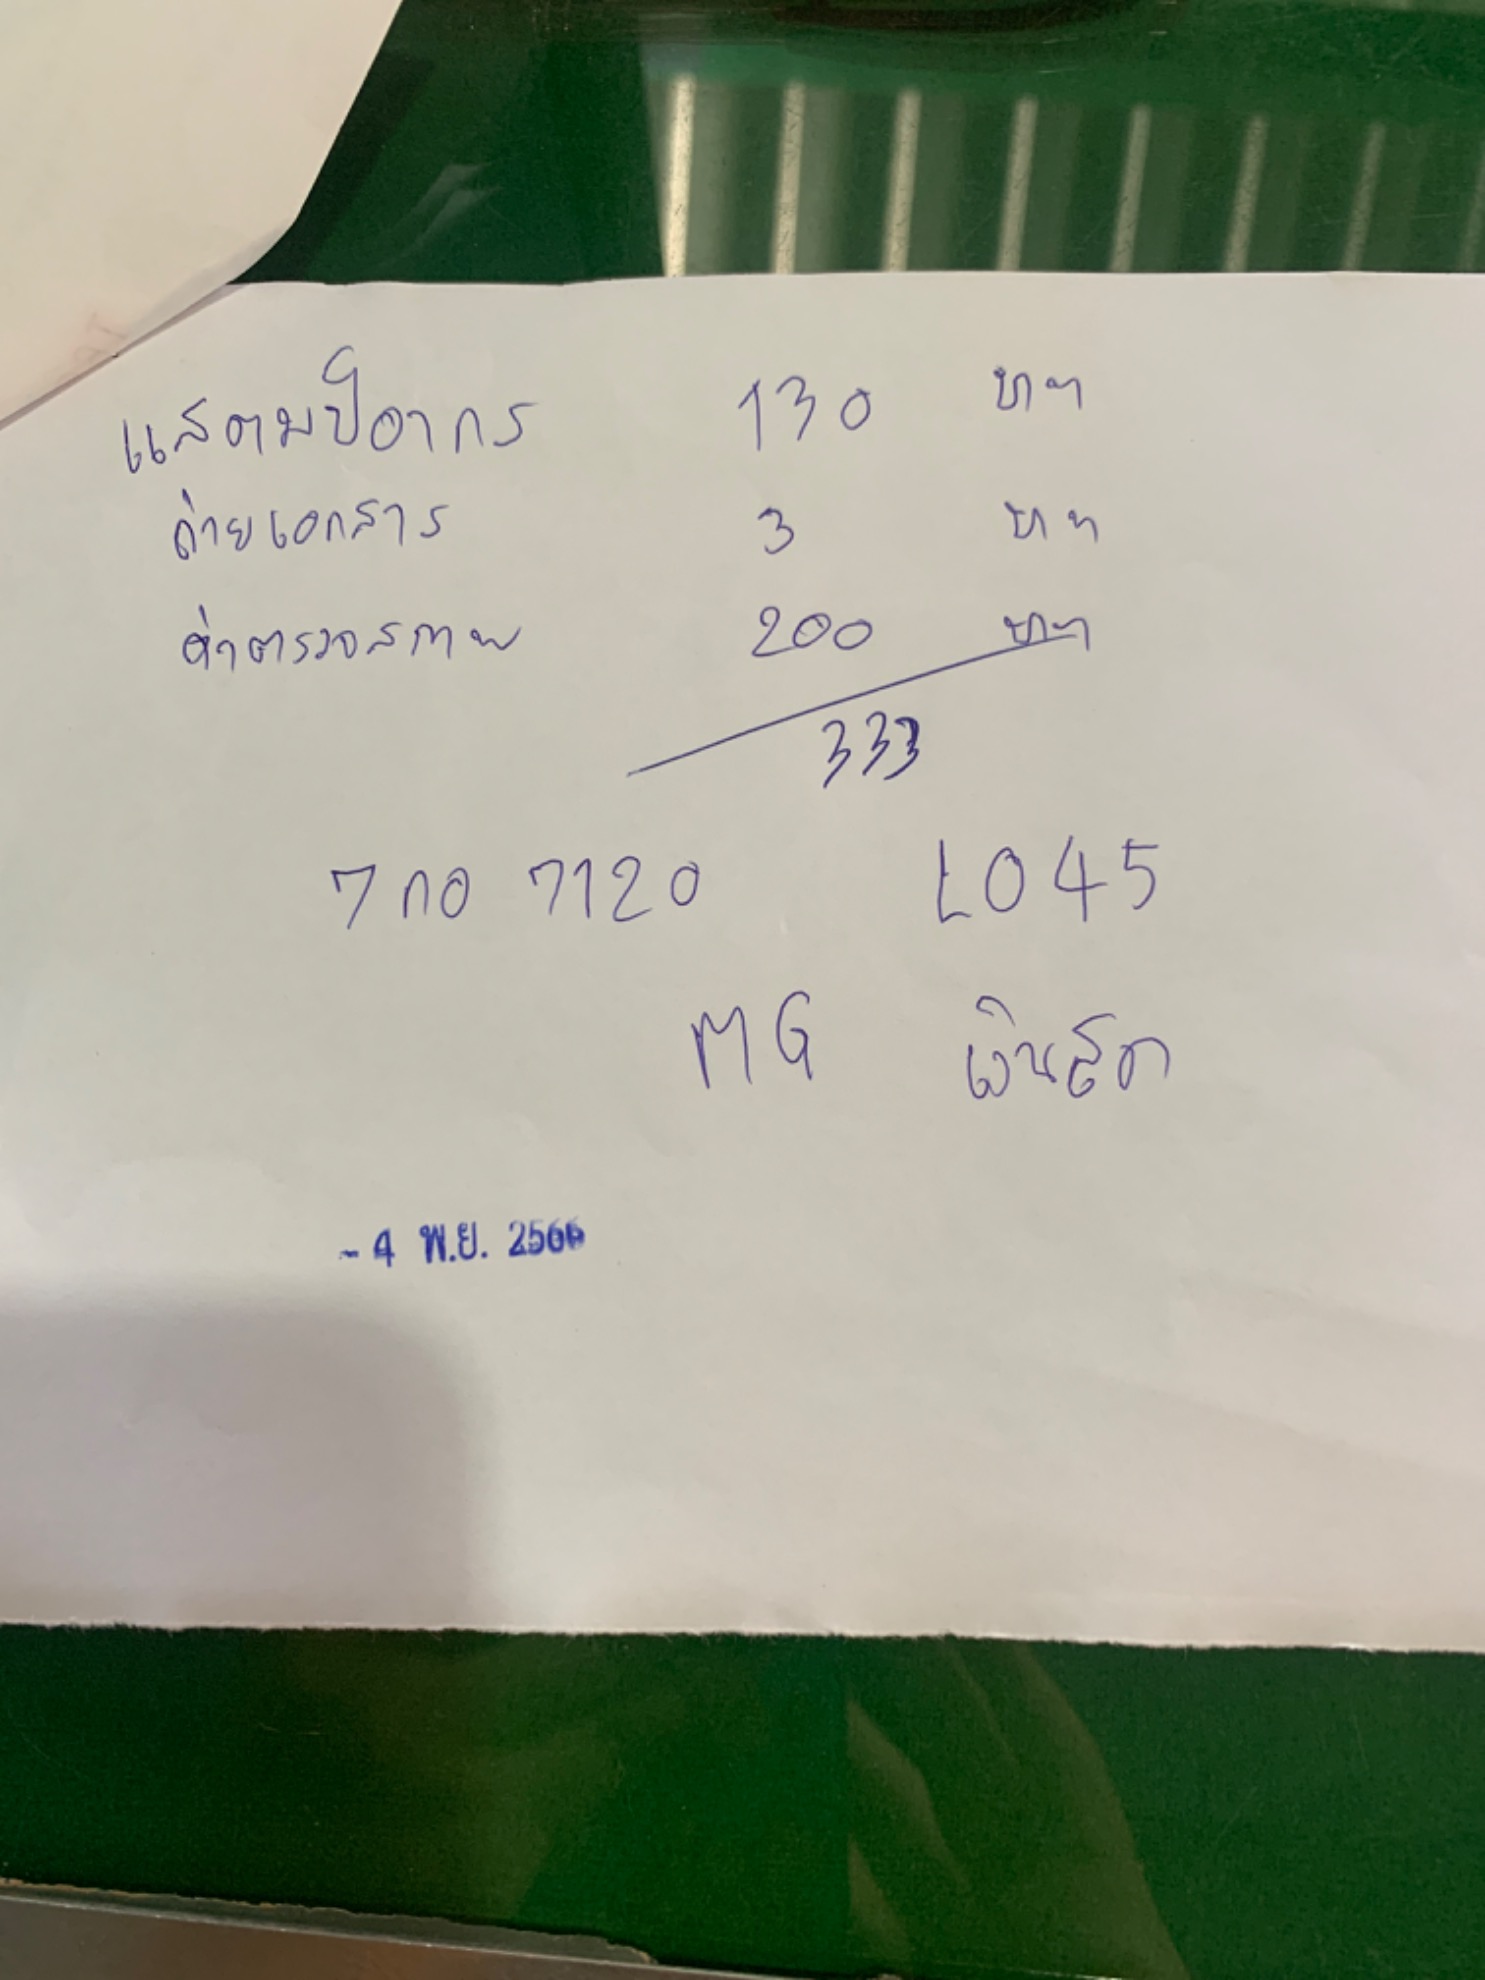 แสตมป์อากร 130 บาท
ถ่ายเอกสาร 3 บาท
ค่าตรวจสภาพ 200 บาท
333
7กอ 7120 L045
MG เงินสด
- 4 พ.ย. 2566